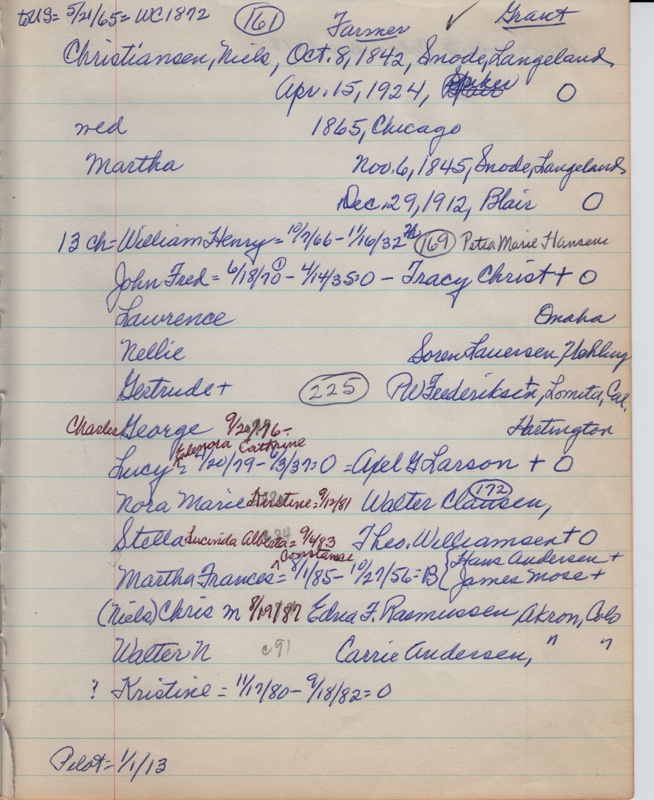 to US = 5/21/65 = WC 1872 (161) Farmer ✓ Grant
Christiansen, Niels, Oct. 8, 1842, Snode, Langeland
Apr. 15, 1924, Spiker O
wed 1865, Chicago
Martha Nov. 6, 1845, Snode, Langeland
Dec. 29, 1912, Blair O
13 ch = William Henry = 10/7/66 - 11/16/32 (169) Petra Marie Hansen
John Fred = 6/18/70 - 4/14/35=O - Tracy Christ + O
Lawrence Omaha
Nellie Soren Lauersen, Uehling
Gertrude + (225) PW Frederiksen +, Lomita, Cal.
Charles George Hartington
Elenora Cathrine
Lucy = 4/20/79 - 6/3/37=O = Axel G Larson + O
Nora Marie Kirstine = 9/12/81 Walter Clausen, (172)
Stella Lucinda Alberta = 9/4/83 Theo. Williamsen + O
Constanse
Martha Frances = 8/1/85 - 10/27/56 = B { Hans Andersen +
James Mose +
(Niels) Chris M 8/19/87 Edna F. Rasmussen, Akron, Colo
Walter N c91 Carrie Andersen, " "
? Kristine = 11/17/80 - 9/18/82=O
Pilot = 1/1/13